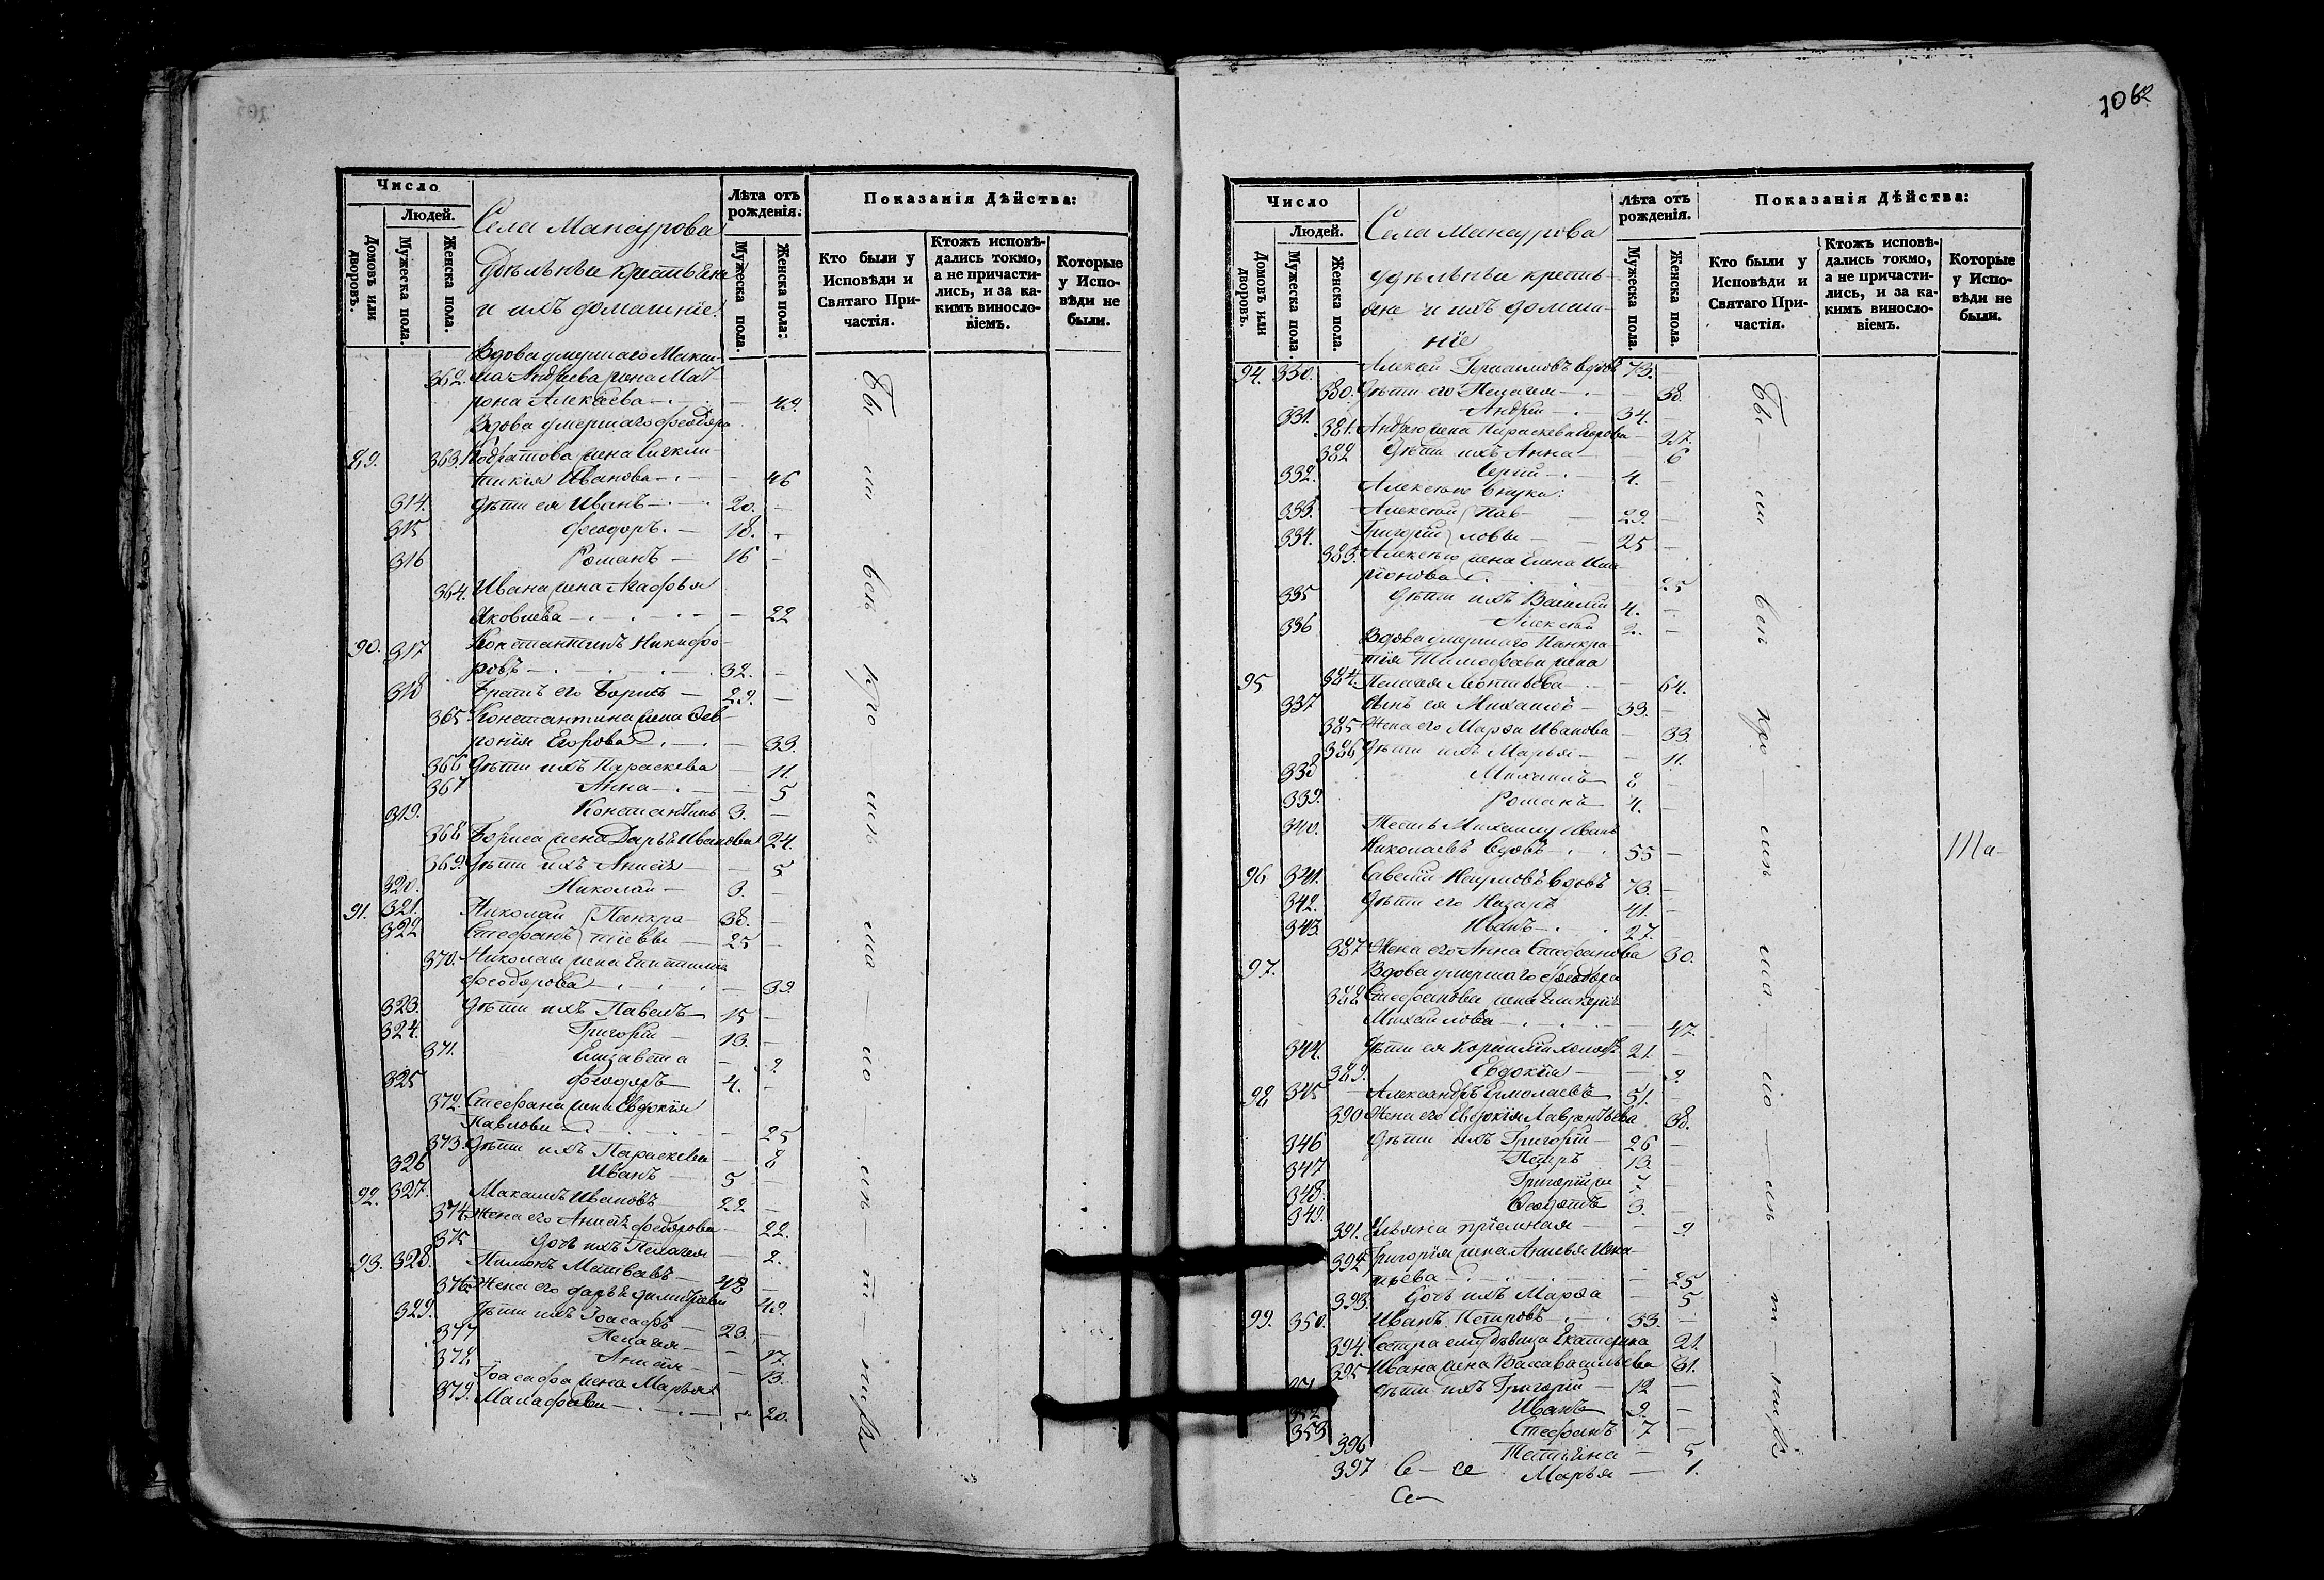 1062
Число
Людей.
Домовъ или дворовъ.
Мужеска пола.
Женска пола.
Села Мансурова
Удѣльные крестьяне
и ихъ домашніе.
Лѣта отъ рожденія.
Мужеска пола.
Женска пола.
Показанія Дѣйства:
Кто были у Исповѣди и Святаго Причастія.
Ктожъ исповѣдались токмо, а не причастились, и за какимъ винословіемъ.
Которые у Исповѣди не были.
Вдова умершаго Макси-
362. ма Андреева жена Мат-
рона Алексѣева — 49.
Вдова умершаго Феодора
89. 363. Кодратова жена
Иванова — 46
314. Дѣти ея Иванъ — 20. —
315 Феодоръ — 18. —
316 Романъ — 16 —
364. Ивана жена Агафья
Яковлева — 22
90. 317 Константинъ Никифо-
ровъ — 32. —
318 Братъ его Борисъ — 29. —
365 Константина жена Фев-
ронія Егорова — 33.
366 Дѣти ихъ Параскева — 11.
367 Анна — 5
319. Константинъ 3. —
368 Бориса жена Дарья Иванова 24.
369. Дѣти ихъ — 5
320. Николай — 3. —
91. 321. Николай Панкра- 38. —
322 Стефанъ тіевы — 25 —
370. Николая жена
Феодорова — 39.
323. Дѣти ихъ Павелъ 15 —
324. Григорій — 13. —
371. Елизавета — 9
325 Феодоръ 4. —
372. Стефана жена Евдокія
Павлова — 25
373. Дѣти ихъ Параскева — 8
326 Иванъ — 5 —
92. 327. Максимъ Ивановъ 22 —
374. Жена его Феодорова — 22.
375 Дочь ихъ Пелагея — 2.
93. 328. Матвѣевъ — 48 —
376. Жена его Дарья Димитріева 49.
329. Дѣти ихъ Іоасафъ — 23. —
377 Пелагея — 17.
378. — 13.
Іоасафа жена Марья
379. — 20.
Бы — ли вси кро — мѣ ма — ло — лѣ — т — нихъ
Число
Людей.
Домовъ или дворовъ.
Мужеска пола.
Женска пола.
Села Мансурова
удѣльные кресть-
яне и ихъ домаш-
ніе
Лѣта отъ рожденія.
Мужеска пола.
Женска пола.
Показанія Дѣйства:
Кто были у Исповѣди и Святаго Причастія.
Ктожъ исповѣдались токмо, а не причастились, и за какимъ винословіемъ.
Которые у Исповѣди не были.
94. 330. Алексѣй Герасимовъ вдовъ 73. —
380. Дѣти его Пелагея — 38.
331. Андрей — 34.
381. Андрея жена Параскева Егорова — 27.
382 Дѣти ихъ Анна — 6
332. Сергій — 4. —
Алексѣевы внуки:
333. Алексѣй Пав- — 29. —
334. Григорій ловы — 25 —
383. Алексѣя жена Елена Ила-
ріонова — 25
335 Дѣти ихъ Василій 4. —
336 Алексѣй 2. —
Вдова умершаго Панкра-
тія Тимофеева жена
95 384. Пелагея Леонтьева — 64.
337 Сынъ ея Михаилъ — 33. —
385 Жена его Марѳа Иванова — 33.
386 Дѣти ихъ Марья — 11.
338 Михаилъ 8 —
339. Романъ 4. —
340. Тесть Михаилу Иванъ
Николаевъ вдовъ — 55 —
96 341. Савелій Наумовъ вдовъ 73. —
342. Дѣти его Назаръ 41. —
343. Иванъ — 27. —
387 Жена его Анна Стефанова 30.
97. Вдова умершаго Феодора
388 Стефанова жена Гликерія
Михаилова — 47.
344. Дѣти ея Корнилій холостъ 21. —
389. Евдокія — 9.
98 345 Александръ Ермолаевъ 51. —
390 Жена его Евдокія Лаврентьева 38.
346 Дѣти ихъ Григорій — 26 —
347 Петръ 13. —
348. Григорій 7 —
349. Ѳеодотъ 3. —
391. Ульяна пріемная — 9
392 Григорія жена
— 25
393. Дочь ихъ Марѳа — 5
99. 350. Иванъ Петровъ — 33. —
394. Сестра ему дѣвица Екатерина 21.
395 Ивана жена Васса Васильева 31.
Дѣти ихъ Григорій — 12 —
352 Иванъ 9. —
353 Стефанъ 7 —
396 Татьяна — 5
397 Марья — 1.
Бы — ли вси кро — мѣ ма — ло — лѣ т. нихъ